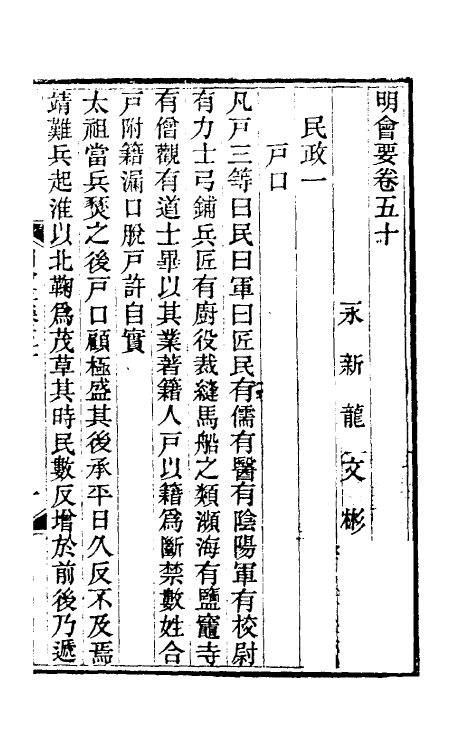 明會要卷五十
永新龍文彬
民政一
戸口
凡戸三等曰民曰軍曰匠民有儒有醫有陰陽軍有校尉
有力士弓鋪兵匠有廚役裁縫馬船之類瀕海有鹽竈寺
有僧觀有道士畢以其業著籍人戸以籍爲斷禁數姓合
戸附籍漏口脫戸許自實
太祖當兵燹之後戸口顧極盛其後承平日久反不及焉
靖難兵起淮以北鞠爲茂草其時民數反增於前後乃遞